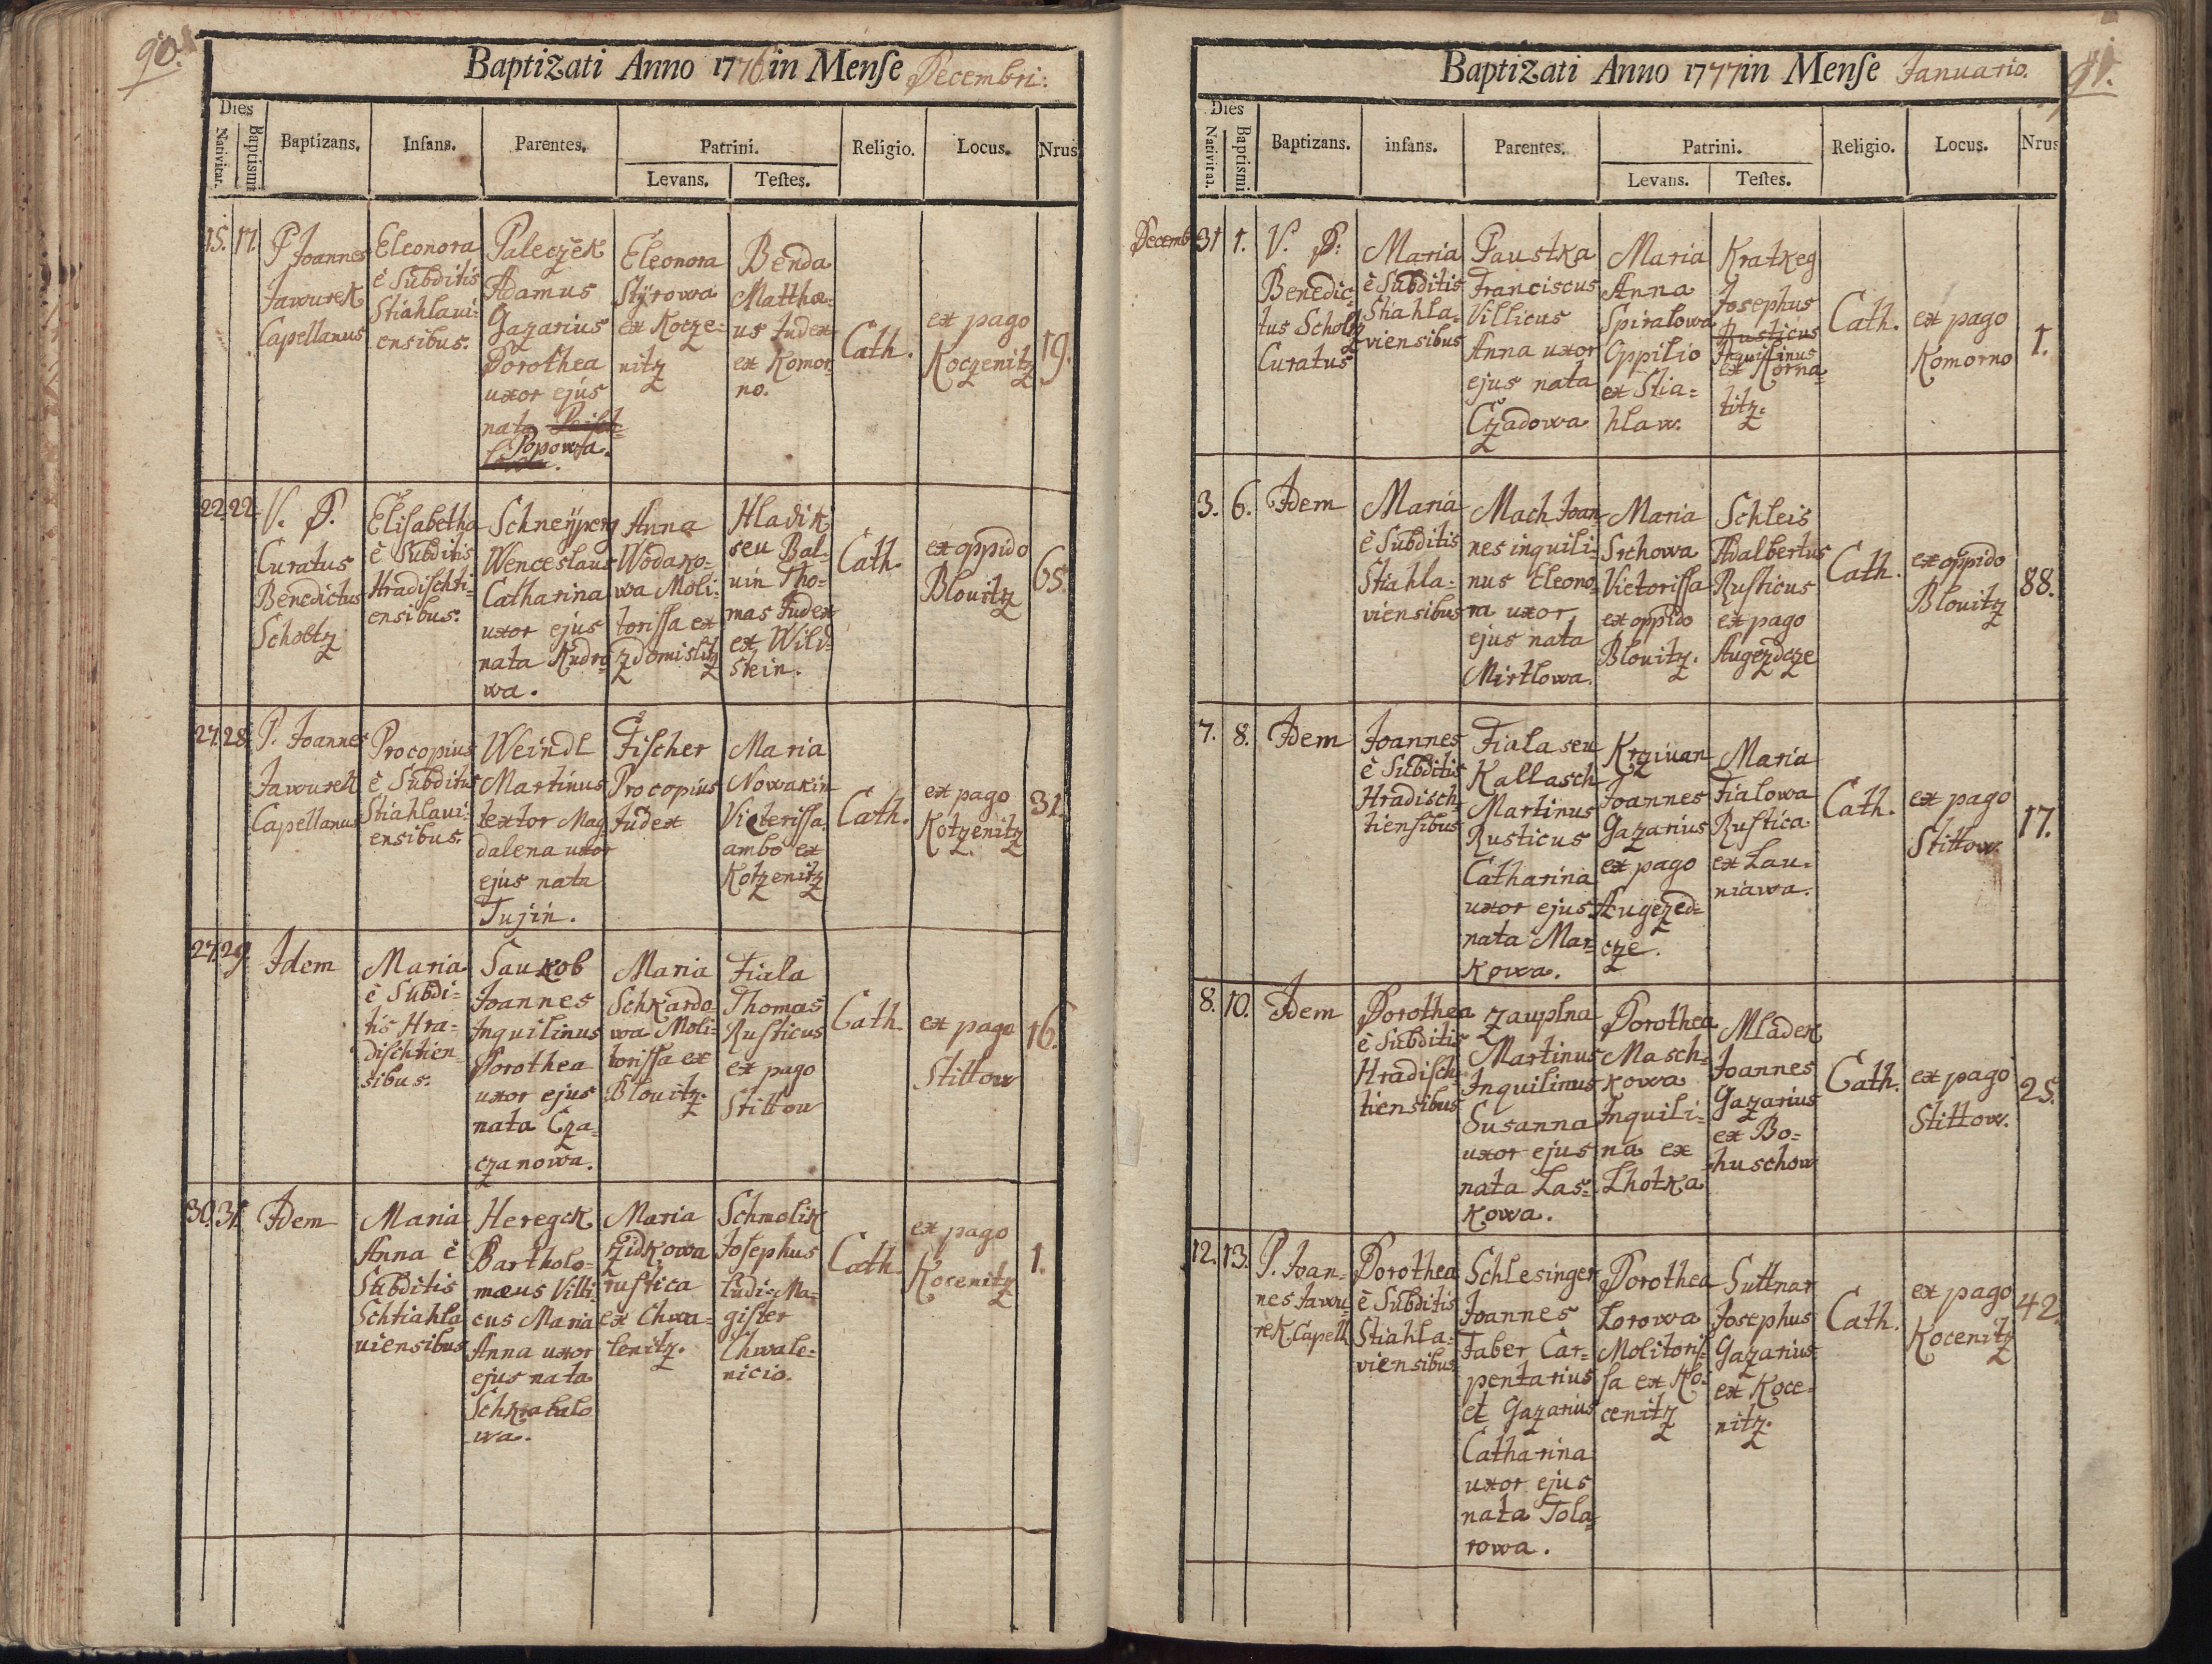 90.
Baptizati Anno 1776 in Menſe Decembri:
Dies
Nativitat.
Baptismi
Baptizans.
Infans.
Parentes.
Patrini.
Levans.
Teſtes.
Religio.
Locus.
Nrus
15.
17.
P Joannes
Jawurek
Capellanus
Eleonora
è Subditis
Stiahlavi-
ensibus.
Paleczek
Adamus
Gazarius
Dorothea
uxor ejus
nata
Popowa.
Eleonora
Stÿrowa
ex Kocze-
nitz
Benda
Matthæ-
us Judex
ex Komor-
no.
Cath.
ex pago
Koczenitz
19.
22.
22.
V. P.
Curatus
Benedictus
Scholtz
Elisabetha
è Subditis
Hradischti-
ensibus.
Schneÿperg
Wenceslaus
Catharina
uxor ejus
nata Kudro-
wa.
Anna
Wodako-
wa Moli-
toriſſa ex
Zdomislitz
Hladik
seu Bal-
uin Tho-
mas Judex
ex Wild-
stein.
Cath.
ex oppido
Blouitz
65.
27.
28.
P. Joannes
Jawurek
Capellanus
Procopius
è Subditis
Stiahlaui-
ensibus.
Weindl
Martinus
textor Mag-
dalena uxor
ejus nata
Tujin.
Fischer
Procopius
Judex
Maria
Nowakin
Victeriſſa
ambo ex
Kotzenitz
Cath.
ex pago
Kotzenitz
31.
27.
29.
Idem
Maria
è Subdi-
tis Hra-
dischtien-
sibus.
Saukob
Joannes
Inquilinus
Dorothea
uxor ejus
nata Cza-
czanowa.
Maria
Schkardo-
wa Moli-
toriſſa ex
Blouitz.
Fiala
Thomas
Rusticus
ex pago
Stittow
Cath.
ex pago
Stittow
16.
30.
31.
Idem
Maria
Anna è
Subditis
Schtiahla
uiensibus
Heregek
Bartholo-
mæus Villi-
cus Maria
Anna uxor
ejus nata
Schkrabalo
wa.
Maria
Zidkowa
rustica
ex Chwa-
lenitz.
Schmolik
Josephus
Ludi Ma-
gister
Chwale-
nicio.
Cath.
ex pago
Kocenitz
1.
91.
Baptizati Anno 1777 in Menſe Januario.
Dies
Nativitat.
Baptismi
Baptizans.
infans.
Parentes.
Patrini.
Levans.
Teſtes.
Religio.
Locus.
Nrus
Decemb.
31
1.
V. P.
Benedic-
tus Scholtz
Curatus
Maria
è Subditis
Stiahla-
viensibus
Paustka
Franciscus
Villicus
Anna uxor
ejus nata
Czadowa
Maria
Anna
Spiralowa
Oppilio
ex Stia-
hlaw.
Kratkeg
Josephus
Rusticus
Inquilinus
ex Korna-
titz.
Cath.
ex pago
Komorno
1.
3.
6.
Idem
Maria
è Subditis
Stiahla-
viensibus
Mach Joan-
nes inquili-
nus Eleono-
ra uxor
ejus nata
Mirtlowa.
Maria
Srchowa
Victoriſſa
ex oppido
Blouitz.
Schleis
Adalbertus
Rusticus
ex pago
Augezdcze
Cath.
ex oppido
Blouitz
88.
7.
8.
Idem
Joannes
è Subditis
Hradisch-
tiensibus
Fiala seu
Kallasch
Martinus
Rusticus
Catharina
uxor ejus
nata Mar-
kowa.
Krziwan
Joannes
Gazarius
ex pago
Augezed-
cze.
Maria
Fialowa
Rustica
ex Lau-
niawa.
Cath.
ex pago
Stittow.
17.
8.
10.
Idem
Dorothea
è Subditis
Hradisch-
tiensibus
Zauplna
Martinus
Inquilinus
Susanna
uxor ejus
nata Las-
kowa.
Dorothea
Masch-
kowa
Inquili-
na ex
Lhotka
Mladek
Joannes
Gazarius
ex Bo-
huschow
Cath.
ex pago
Stittow.
25.
12.
13.
P. Joan-
nes Jawu-
rek Capell.
Dorothea
è Subditis
Stiahla-
viensibus.
Schlesinger
Joannes
Faber Car-
pentarius
et Gazarius
Catharina
uxor ejus
nata Tola-
rowa.
Dorothea
Lorowa
Molitoriſ-
ſa ex Ko-
cenitz
Suttnar
Josephus
Gazarius
ex Koce-
nitz.
Cath.
ex pago
Kocenitz
42.